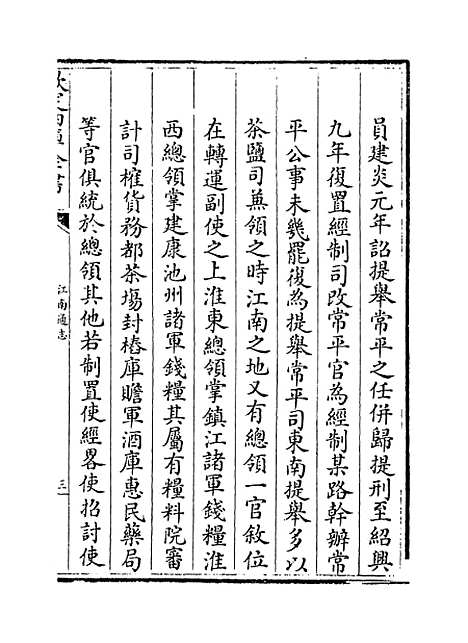 員建炎元年詔提舉常平之任併歸提刑至紹興
九年復置經制司改常平官為經制某路幹辦常
平公事未幾罷復為提舉常平司東南提舉多以
茶鹽司兼領之時江南之地又有總領一官敘位
在轉運副使之上淮東總領掌鎮江諸軍錢糧淮
西總領掌建康池州諸軍錢糧其屬有糧料院審
計司榷貨務都茶場封樁庫贍軍酒庫惠民藥局
等官俱統於總領其他若制置使經畧使招討使
欽定四庫全書
江南通志
三